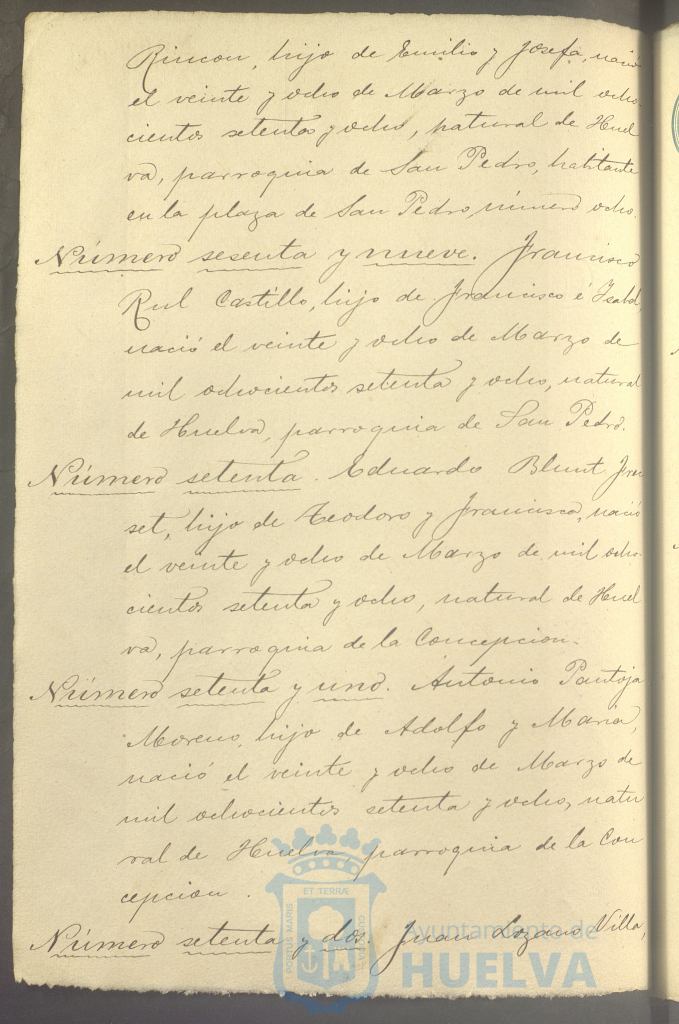 Rincon, hijo de Emilio y Josefa, nació
el veinte y ocho de Marzo de mil ocho-
cientos setenta y ocho, natural de Huel
va, parroquia de San Pedro, habitante
en la plaza de San Pedro, número ocho.
Número sesenta y nueve. Francisco
Rul Castillo, hijo de Francisco é Isabel,
nació el veinte y ocho de Marzo de
mil ochocientos setenta y ocho, natural
de Huelva, parroquia de San Pedro.
Número setenta. Eduardo Blunt
set, hijo de Teodoro y Francisca, nació
el veinte y ocho de Marzo de mil ocho-
cientos setenta y ocho, natural de Huel
va, parroquia de la Concepcion.
Número setenta y uno. Antonio Pantoja
Moreno, hijo de Adolfo y Maria,
nació el veinte y ocho de Marzo de
mil ochocientos setenta y ocho, natu
ral de Huelva, parroquia de la Con
cepcion.
Número setenta y dos. Juan Lozano Villa,
PORTUS MARIS ET TERRÆ CUSTODIA
Ayuntamiento de
HUELVA